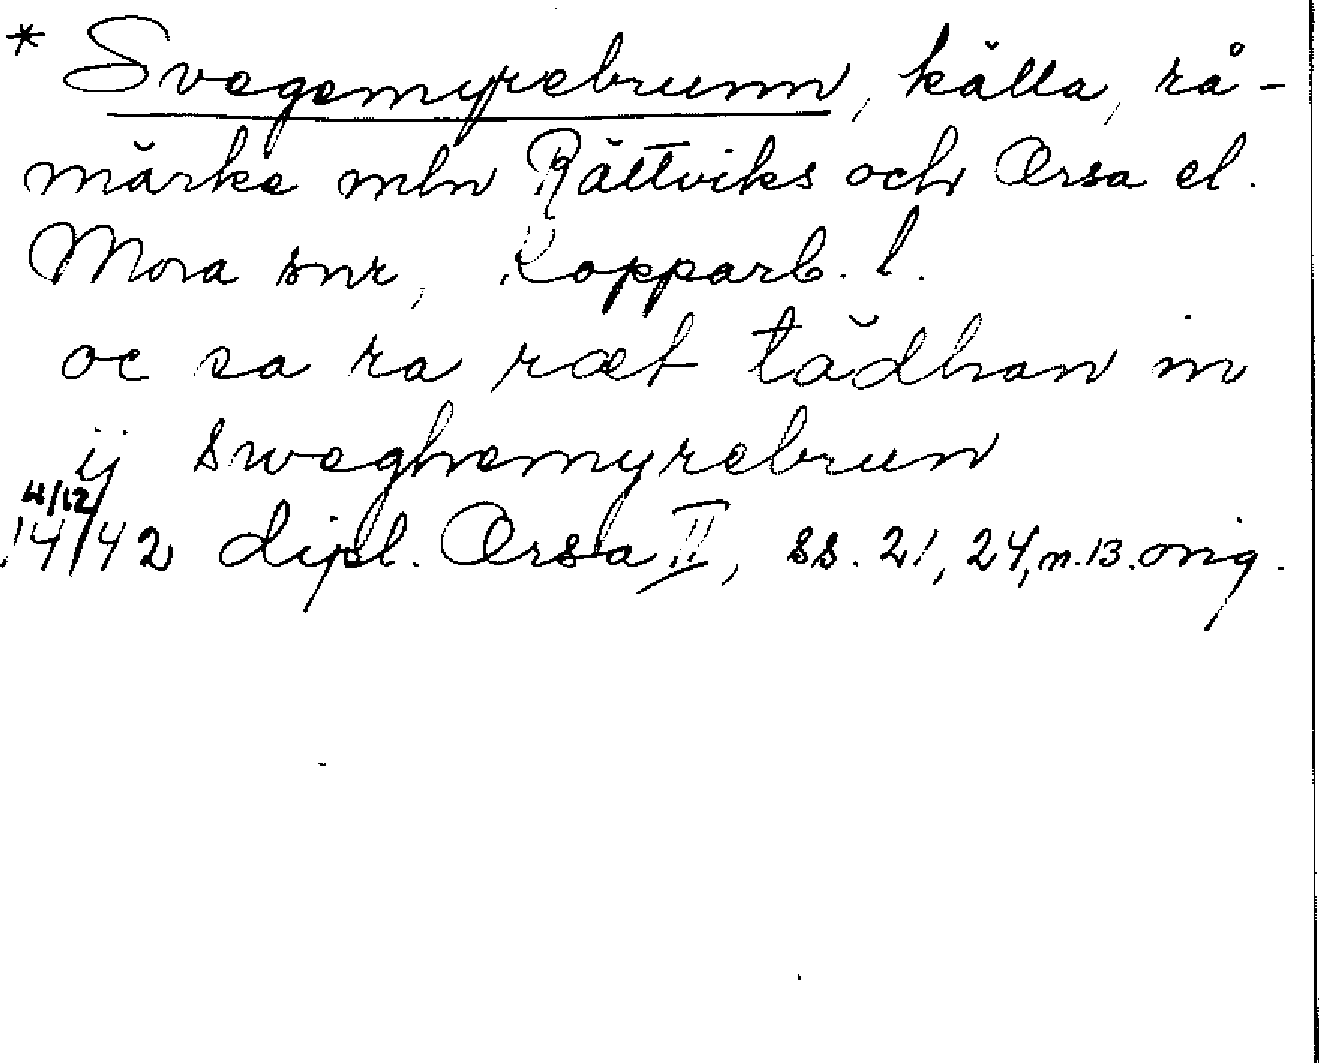 * Svegemyrebrunn, källa, rå-
märke mln Rättviks och Orsa el.
Mora snr, Kopparb. l.
oc sa ra ræt tädhan in
ij sweghemyrebrun
4/12
1442 dipl. Orsa II, ss. 21, 24, n. 13. orig.